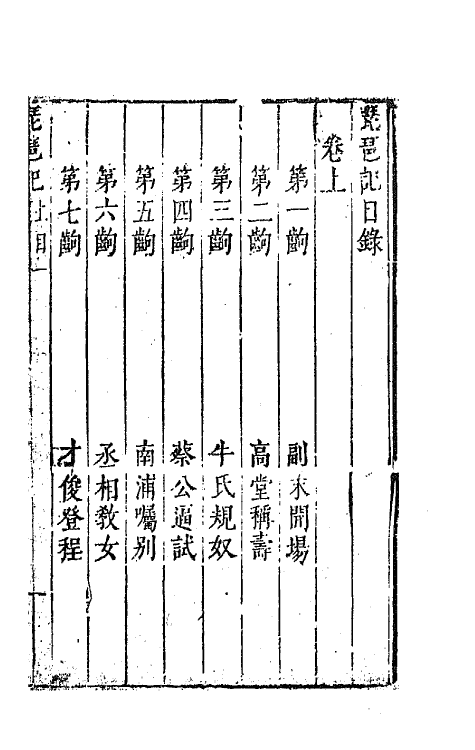 琵琶記目錄
卷上
第一齣　副末開場
第二齣　高堂稱壽
第三齣　牛氏規奴
第四齣　蔡公逼試
第五齣　南浦囑别
第六齣　丞相敎女
第七齣　才俊登程
琵琶記